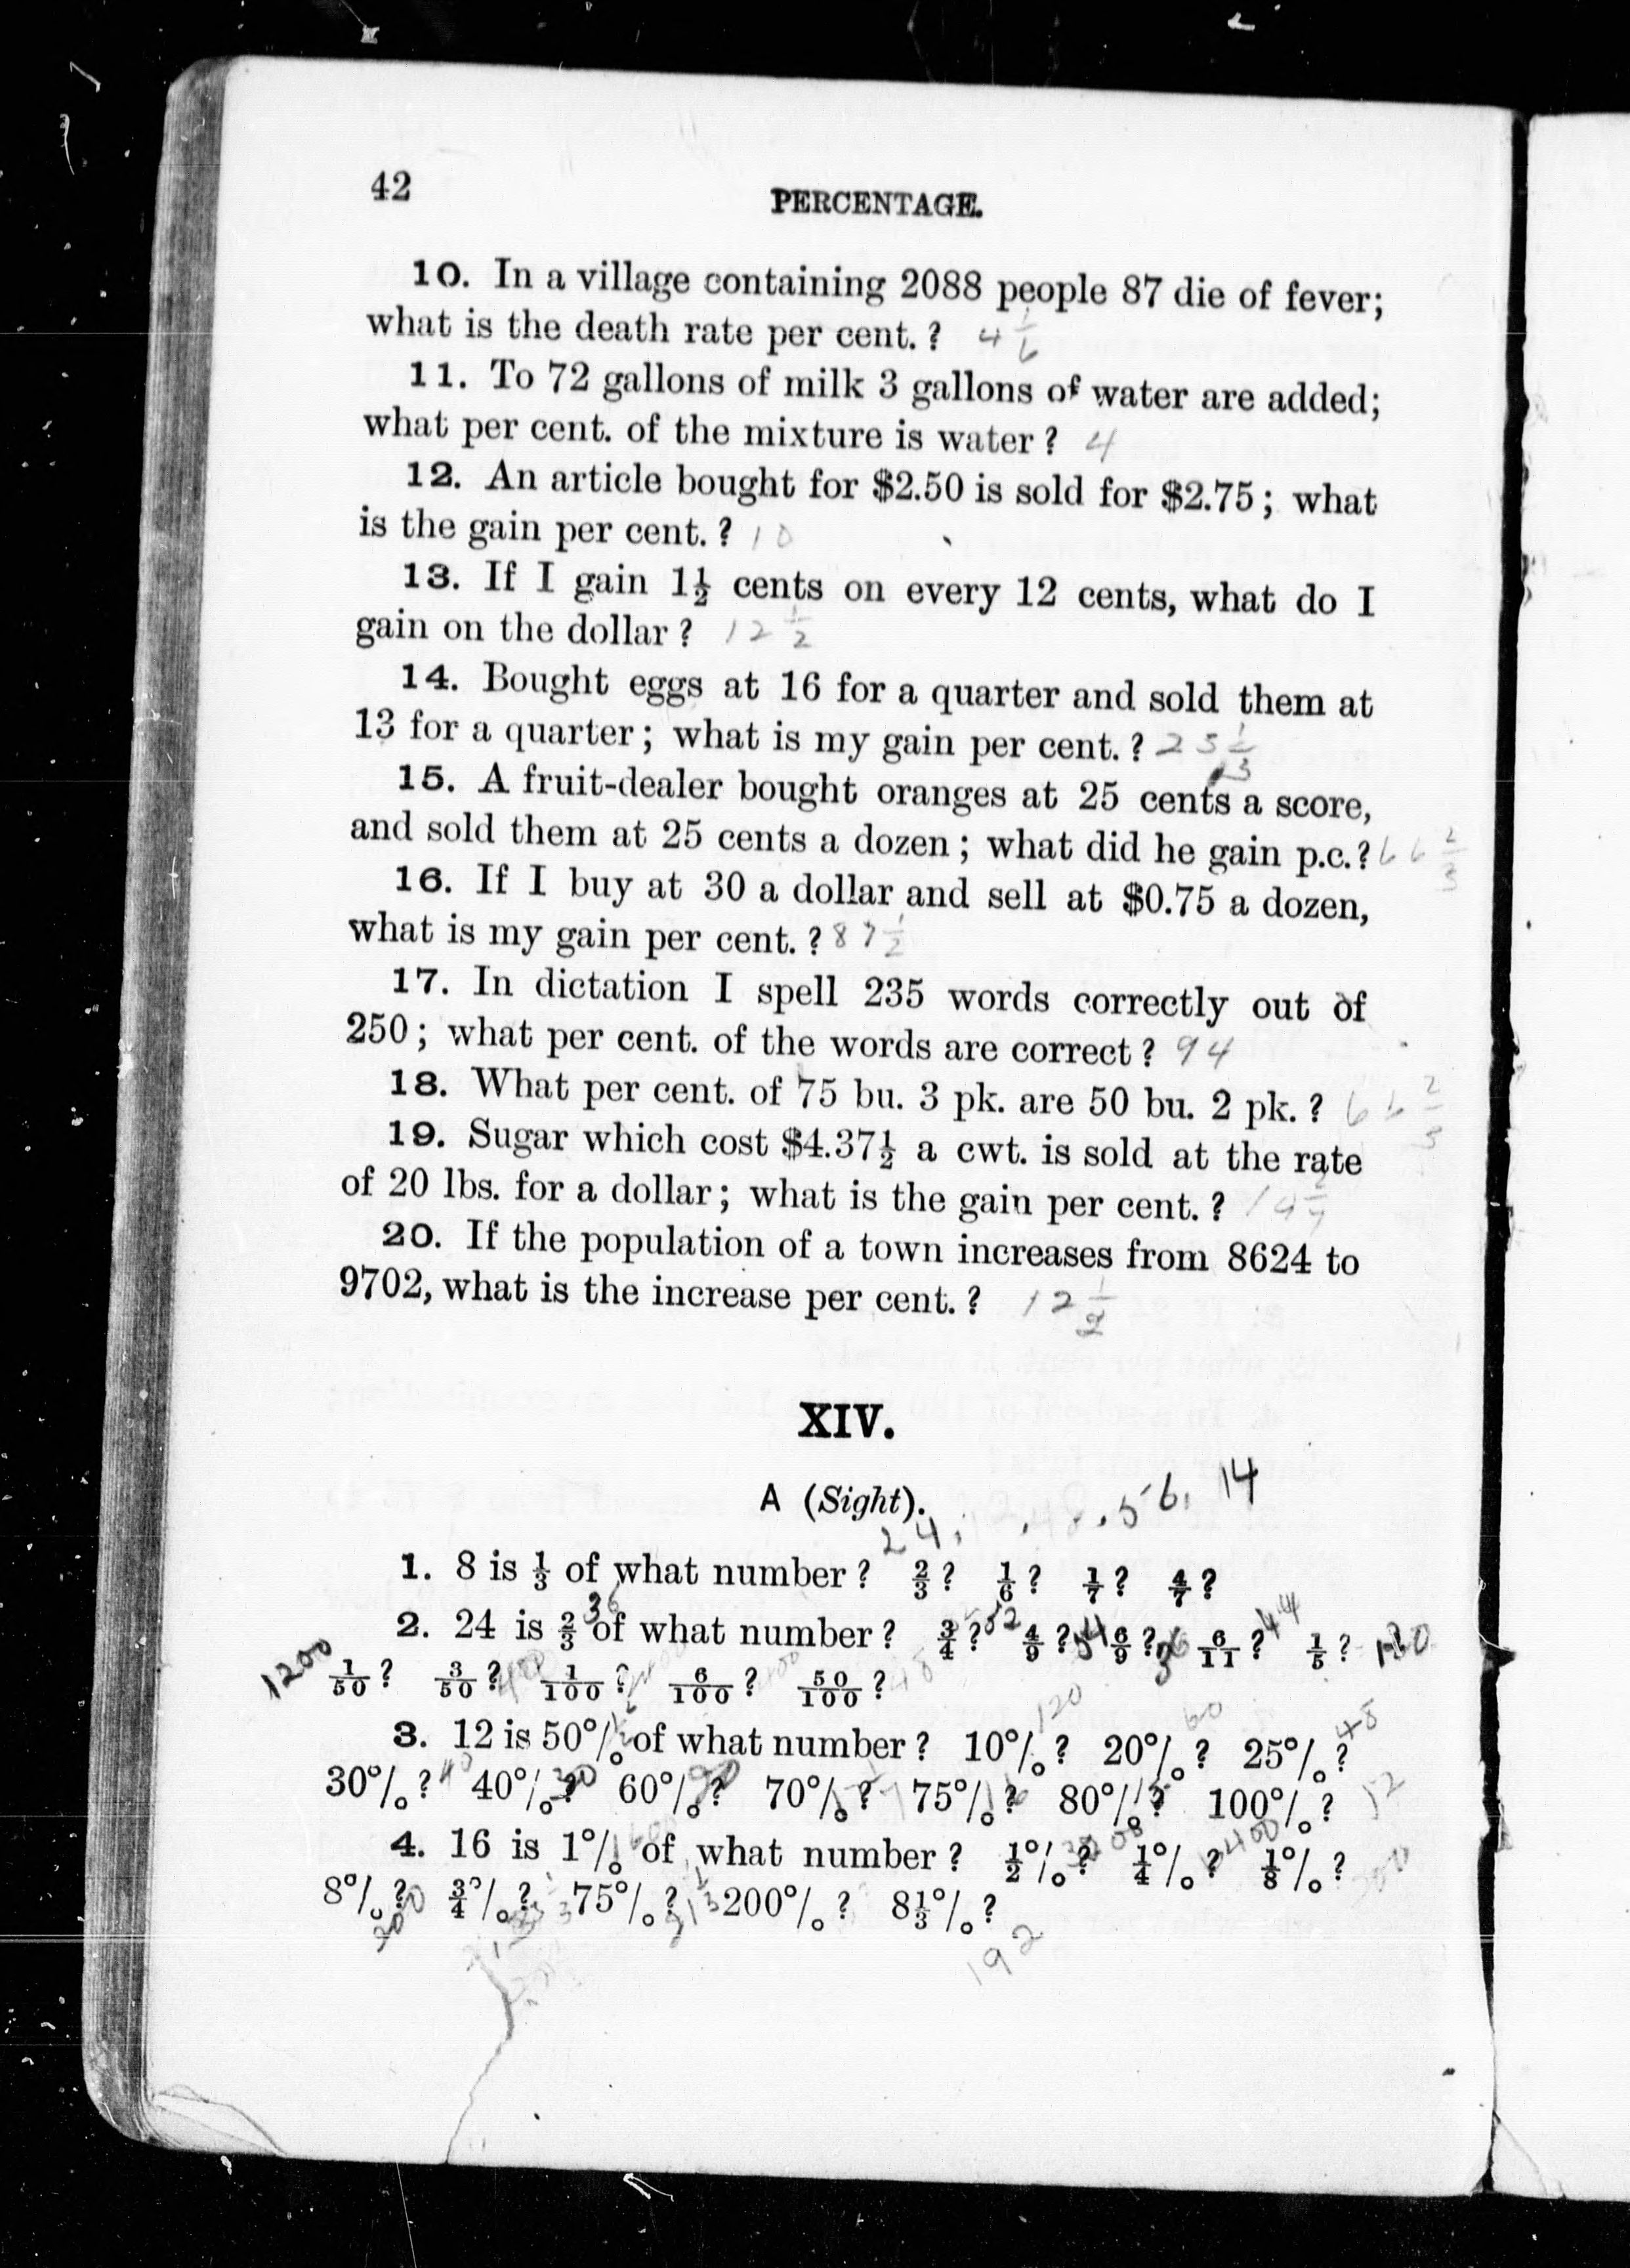 42
PERCENTAGE.
10. In a village containing 2088 people 87 die of fever;
what is the death rate per cent. ? 4 1/6
11. To 72 gallons of milk 3 gallons of water are added;
what per cent. of the mixture is water ? 4
12. An article bought for $2.50 is sold for $2.75 ; what
is the gain per cent. ? 10
13. If I gain 1½ cents on every 12 cents, what do I
gain on the dollar ? 12 ½
14. Bought eggs at 16 for a quarter and sold them at
13 for a quarter ; what is my gain per cent. ?
15. A fruit-dealer bought oranges at 25 cents a score,
and sold them at 25 cents a dozen ; what did he gain p.c. ? 66 2/3
16. If I buy at 30 a dollar and sell at $0.75 a dozen,
what is my gain per cent. ? 87 ½
17. In dictation I spell 235 words correctly out of
250 ; what per cent. of the words are correct ? 94
18. What per cent. of 75 bu. 3 pk. are 50 bu. 2 pk. ? 66 2/3
19. Sugar which cost $4.37½ a cwt. is sold at the rate
of 20 lbs. for a dollar ; what is the gain per cent. ?
20. If the population of a town increases from 8624 to
9702, what is the increase per cent. ? 12 ½
XIV.
A (Sight).
24, 12, 48, 56, 14
1. 8 is 1/3 of what number ? 2/3 ? 1/6 ? 1/7 ? 4/7 ?
2. 24 is 2/3 of what number ? 3/4 ? 4/9 ? 6/9 ? 6/11 ? 1/5 ?
1/50 ? 3/50 ? 1/100 ? 6/100 ? 50/100 ?
3. 12 is 50% of what number ? 10% ? 20% ? 25% ?
30% ? 40% ? 60% ? 70% ? 75% ? 80% ? 100% ?
4. 16 is 1% of what number ? ½% ? ¼% ? 1/8% ?
8% ? ¾% ? 75% ? 200% ? 8 1/3% ?
192